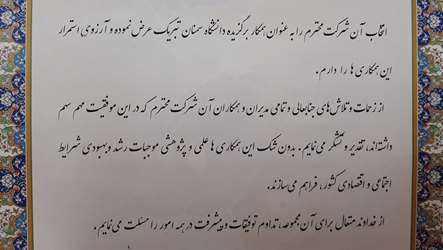 انتخاب آن شرکت محترم را به عنوان همکار برگزیده دانشگاه سمنان تبریک عرض نموده و آرزوی استمرار
این همکاری ها را دارم.
از زحمات و تلاش‌های جنابعالی و تمامی مدیران و همکاران آن شرکت محترم که در این موفقیت مهم سهم
داشته‌اند، تقدیر و تشکر می‌نمایم. بدون شک این همکاری ها علمی و پژوهشی موجبات رشد و بهبودی شرایط
اجتماعی و اقتصادی کشور، فراهم می‌سازند.
از خداوند متعال برای آن مجموعه، تداوم توفیقات و پیشرفت در همه امور را مسئلت می‌نمایم.